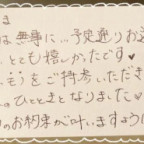 ま
は無事に…予定通りお
とても嬉しかったです♥
も)をご持参いただき
のひとときとなりました♡
のお約束が叶いますように